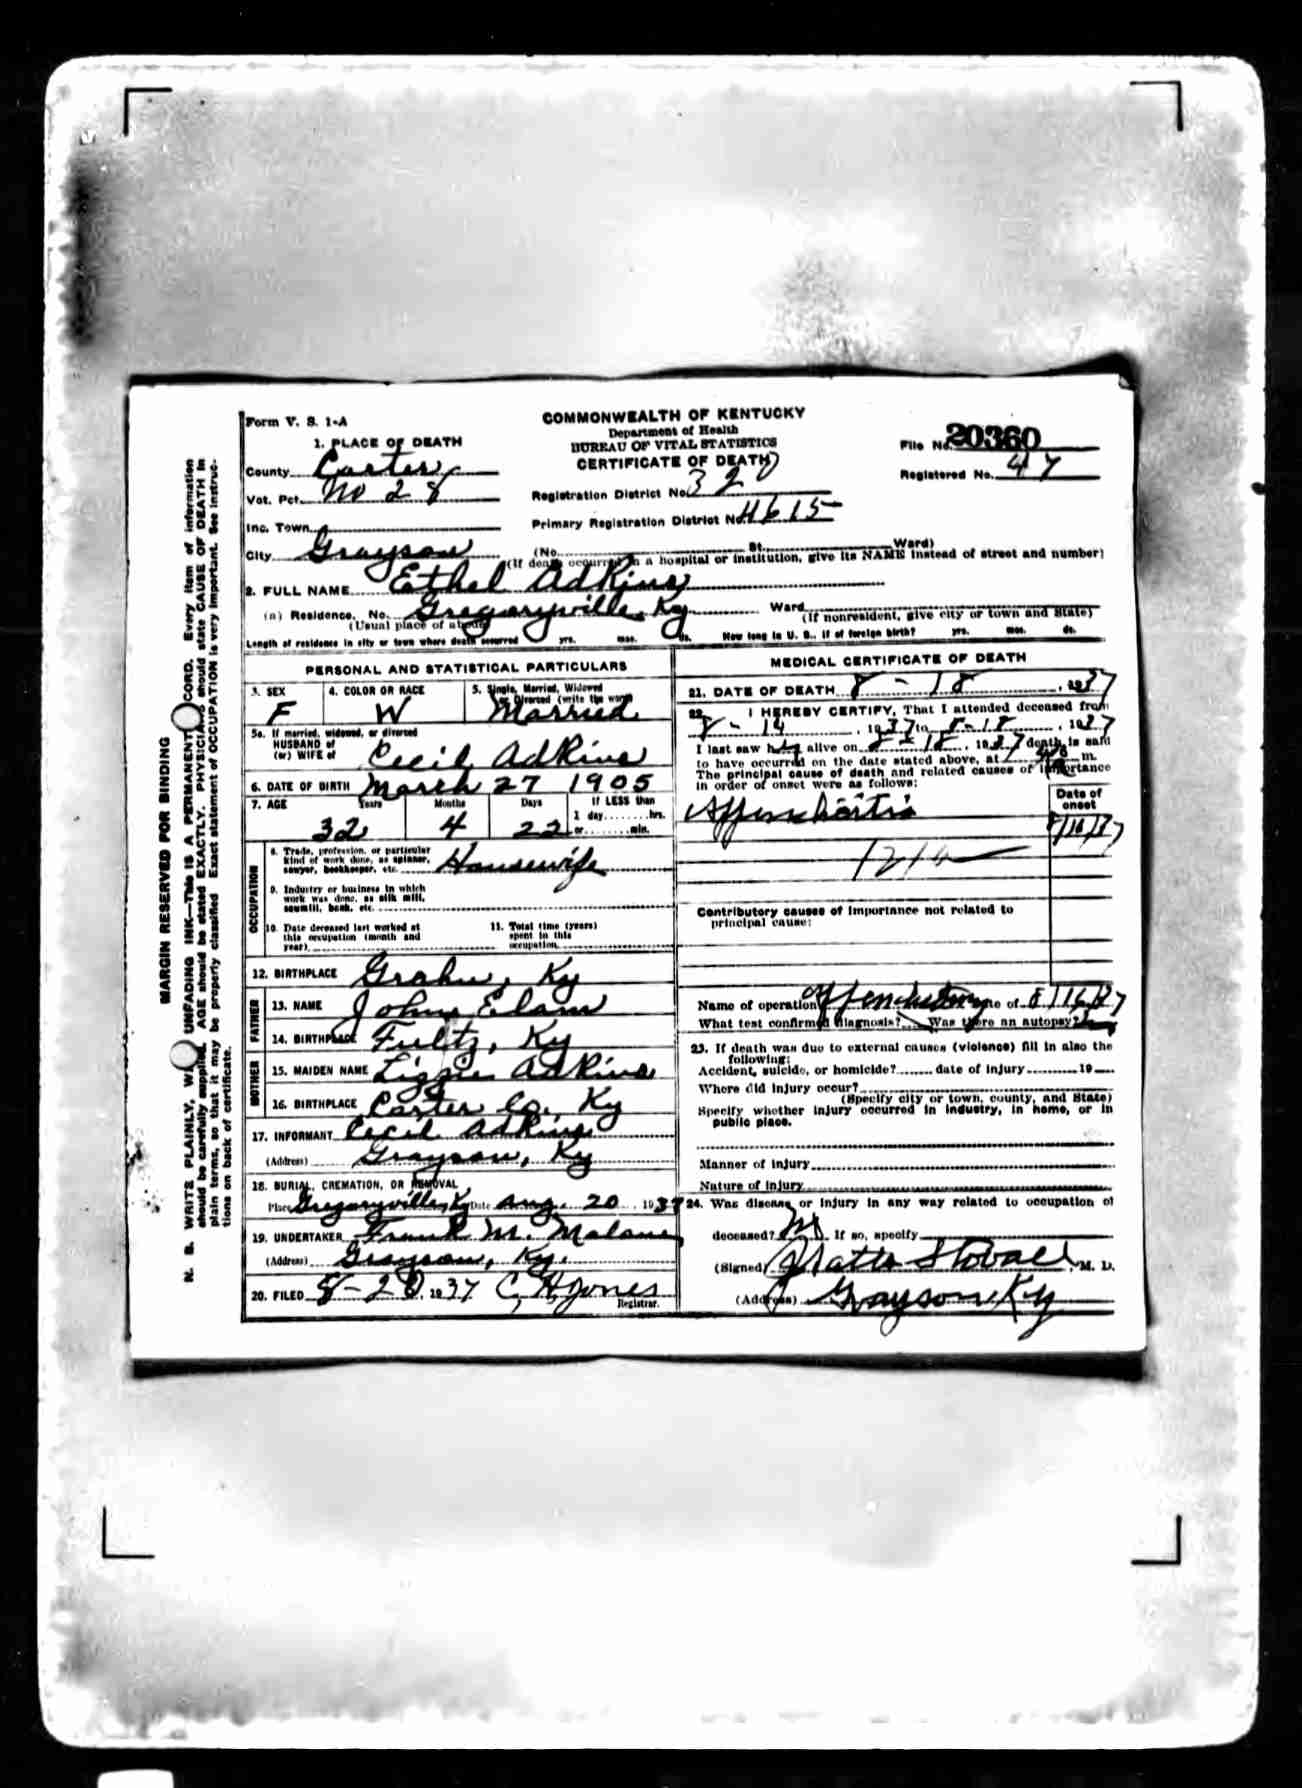 Form V. S. 1-A
COMMONWEALTH OF KENTUCKY
Department of Health
BUREAU OF VITAL STATISTICS
CERTIFICATE OF DEATH
File No. 20360
Registered No. 47
1. PLACE OF DEATH
County Carter
Vot. Pct. No 28
Inc. Town
City Grayson
Registration District No. 320
Primary Registration District No. 4615
(No. St. Ward)
(If death occurred in a hospital or institution, give its NAME instead of street and number)
2. FULL NAME Ethel Adkins
(a) Residence, No. Gregoryville, Ky Ward
(Usual place of abode) (If nonresident, give city or town and State)
Length of residence in city or town where death occurred yrs. mos. ds. How long in U. S., if of foreign birth? yrs. mos. ds.
PERSONAL AND STATISTICAL PARTICULARS
3. SEX F
4. COLOR OR RACE W
5. Single, Married, Widowed or Divorced (write the word) Married
5a. If married, widowed, or divorced
HUSBAND of
(or) WIFE of Cecil Adkins
6. DATE OF BIRTH March 27 1905
7. AGE Years 32 Months 4 Days 22 If LESS than 1 day hrs. or min.
OCCUPATION
8. Trade, profession, or particular kind of work done, as spinner, sawyer, bookkeeper, etc. Housewife
9. Industry or business in which work was done, as silk mill, sawmill, bank, etc.
10. Date deceased last worked at this occupation (month and year)
11. Total time (years) spent in this occupation
12. BIRTHPLACE Grahn, Ky
FATHER
13. NAME John Elam
14. BIRTHPLACE Fultz, Ky
MOTHER
15. MAIDEN NAME Lizzie Adkins
16. BIRTHPLACE Carter Co., Ky
17. INFORMANT Cecil Adkins
(Address) Grayson, Ky
18. BURIAL, CREMATION, OR REMOVAL
Place Gregoryville, Ky Date Aug. 20 1937
19. UNDERTAKER Frank M. Malone
(Address) Grayson, Ky.
20. FILED 8-20, 1937 C. H. Jones
Registrar.
MEDICAL CERTIFICATE OF DEATH
21. DATE OF DEATH 8-18, 1937
22. I HEREBY CERTIFY, That I attended deceased from
8-14, 1937 to 8-18, 1937
I last saw her alive on 8-18, 1937 death is said
to have occurred on the date stated above, at m.
The principal cause of death and related causes of importance
in order of onset were as follows:
Date of onset
Appendicitis 8/16/37
121a
Contributory causes of importance not related to
principal cause:
Name of operation Appendectomy Date of 8/16/37
What test confirmed diagnosis? Was there an autopsy?
23. If death was due to external causes (violence) fill in also the
following:
Accident, suicide, or homicide? date of injury 19
Where did injury occur?
(Specify city or town, county, and State)
Specify whether injury occurred in industry, in home, or in
public place.
Manner of injury
Nature of injury
24. Was disease or injury in any way related to occupation of
deceased? No If so, specify
(Signed) Watts Stovall, M. D.
(Address) Grayson Ky
MARGIN RESERVED FOR BINDING
N. B. WRITE PLAINLY, WITH UNFADING INK—This IS A PERMANENT RECORD. Every item of information
should be carefully supplied. AGE should be stated EXACTLY. PHYSICIANS should state CAUSE OF DEATH in
plain terms, so that it may be properly classified. Exact statement of OCCUPATION is very important. See instruc-
tions on back of certificate.